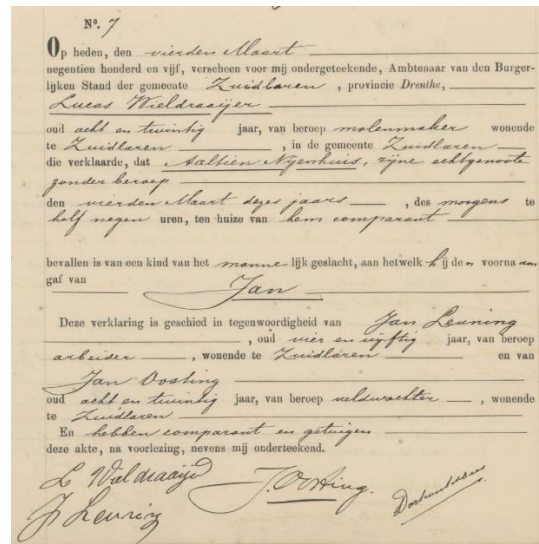 No. 7
Op heden, den vierden Maart
negentien honderd en vijf, verscheen voor mij ondergeteekende, Ambtenaar van den Burger-
lijken Stand der gemeente Zuidlaren, provincie Drenthe,
Lucas Wieldraaijer
oud acht en twintig jaar, van beroep molenmaker wonende
te Zuidlaren, in de gemeente Zuidlaren
die verklaarde, dat Aaltien Nijenhuis, zijne echtgenoote
zonder beroep
den vierden Maart dezes jaars, des morgens te
half negen uren, ten huize van hem comparant
bevallen is van een kind van het mannelijk geslacht, aan hetwelk hij den voornaam
gaf van
Jan
Deze verklaring is geschied in tegenwoordigheid van Jan Leuning
, oud vier en vijftig jaar, van beroep
arbeider, wonende te Zuidlaren en van
Jan Oosting
oud acht en twintig jaar, van beroep veldwachter, wonende
te Zuidlaren
En hebben comparant en getuigen
deze akte, na voorlezing, nevens mij onderteekend.
L Wieldraaijer
J. Oosting.
J Leuning